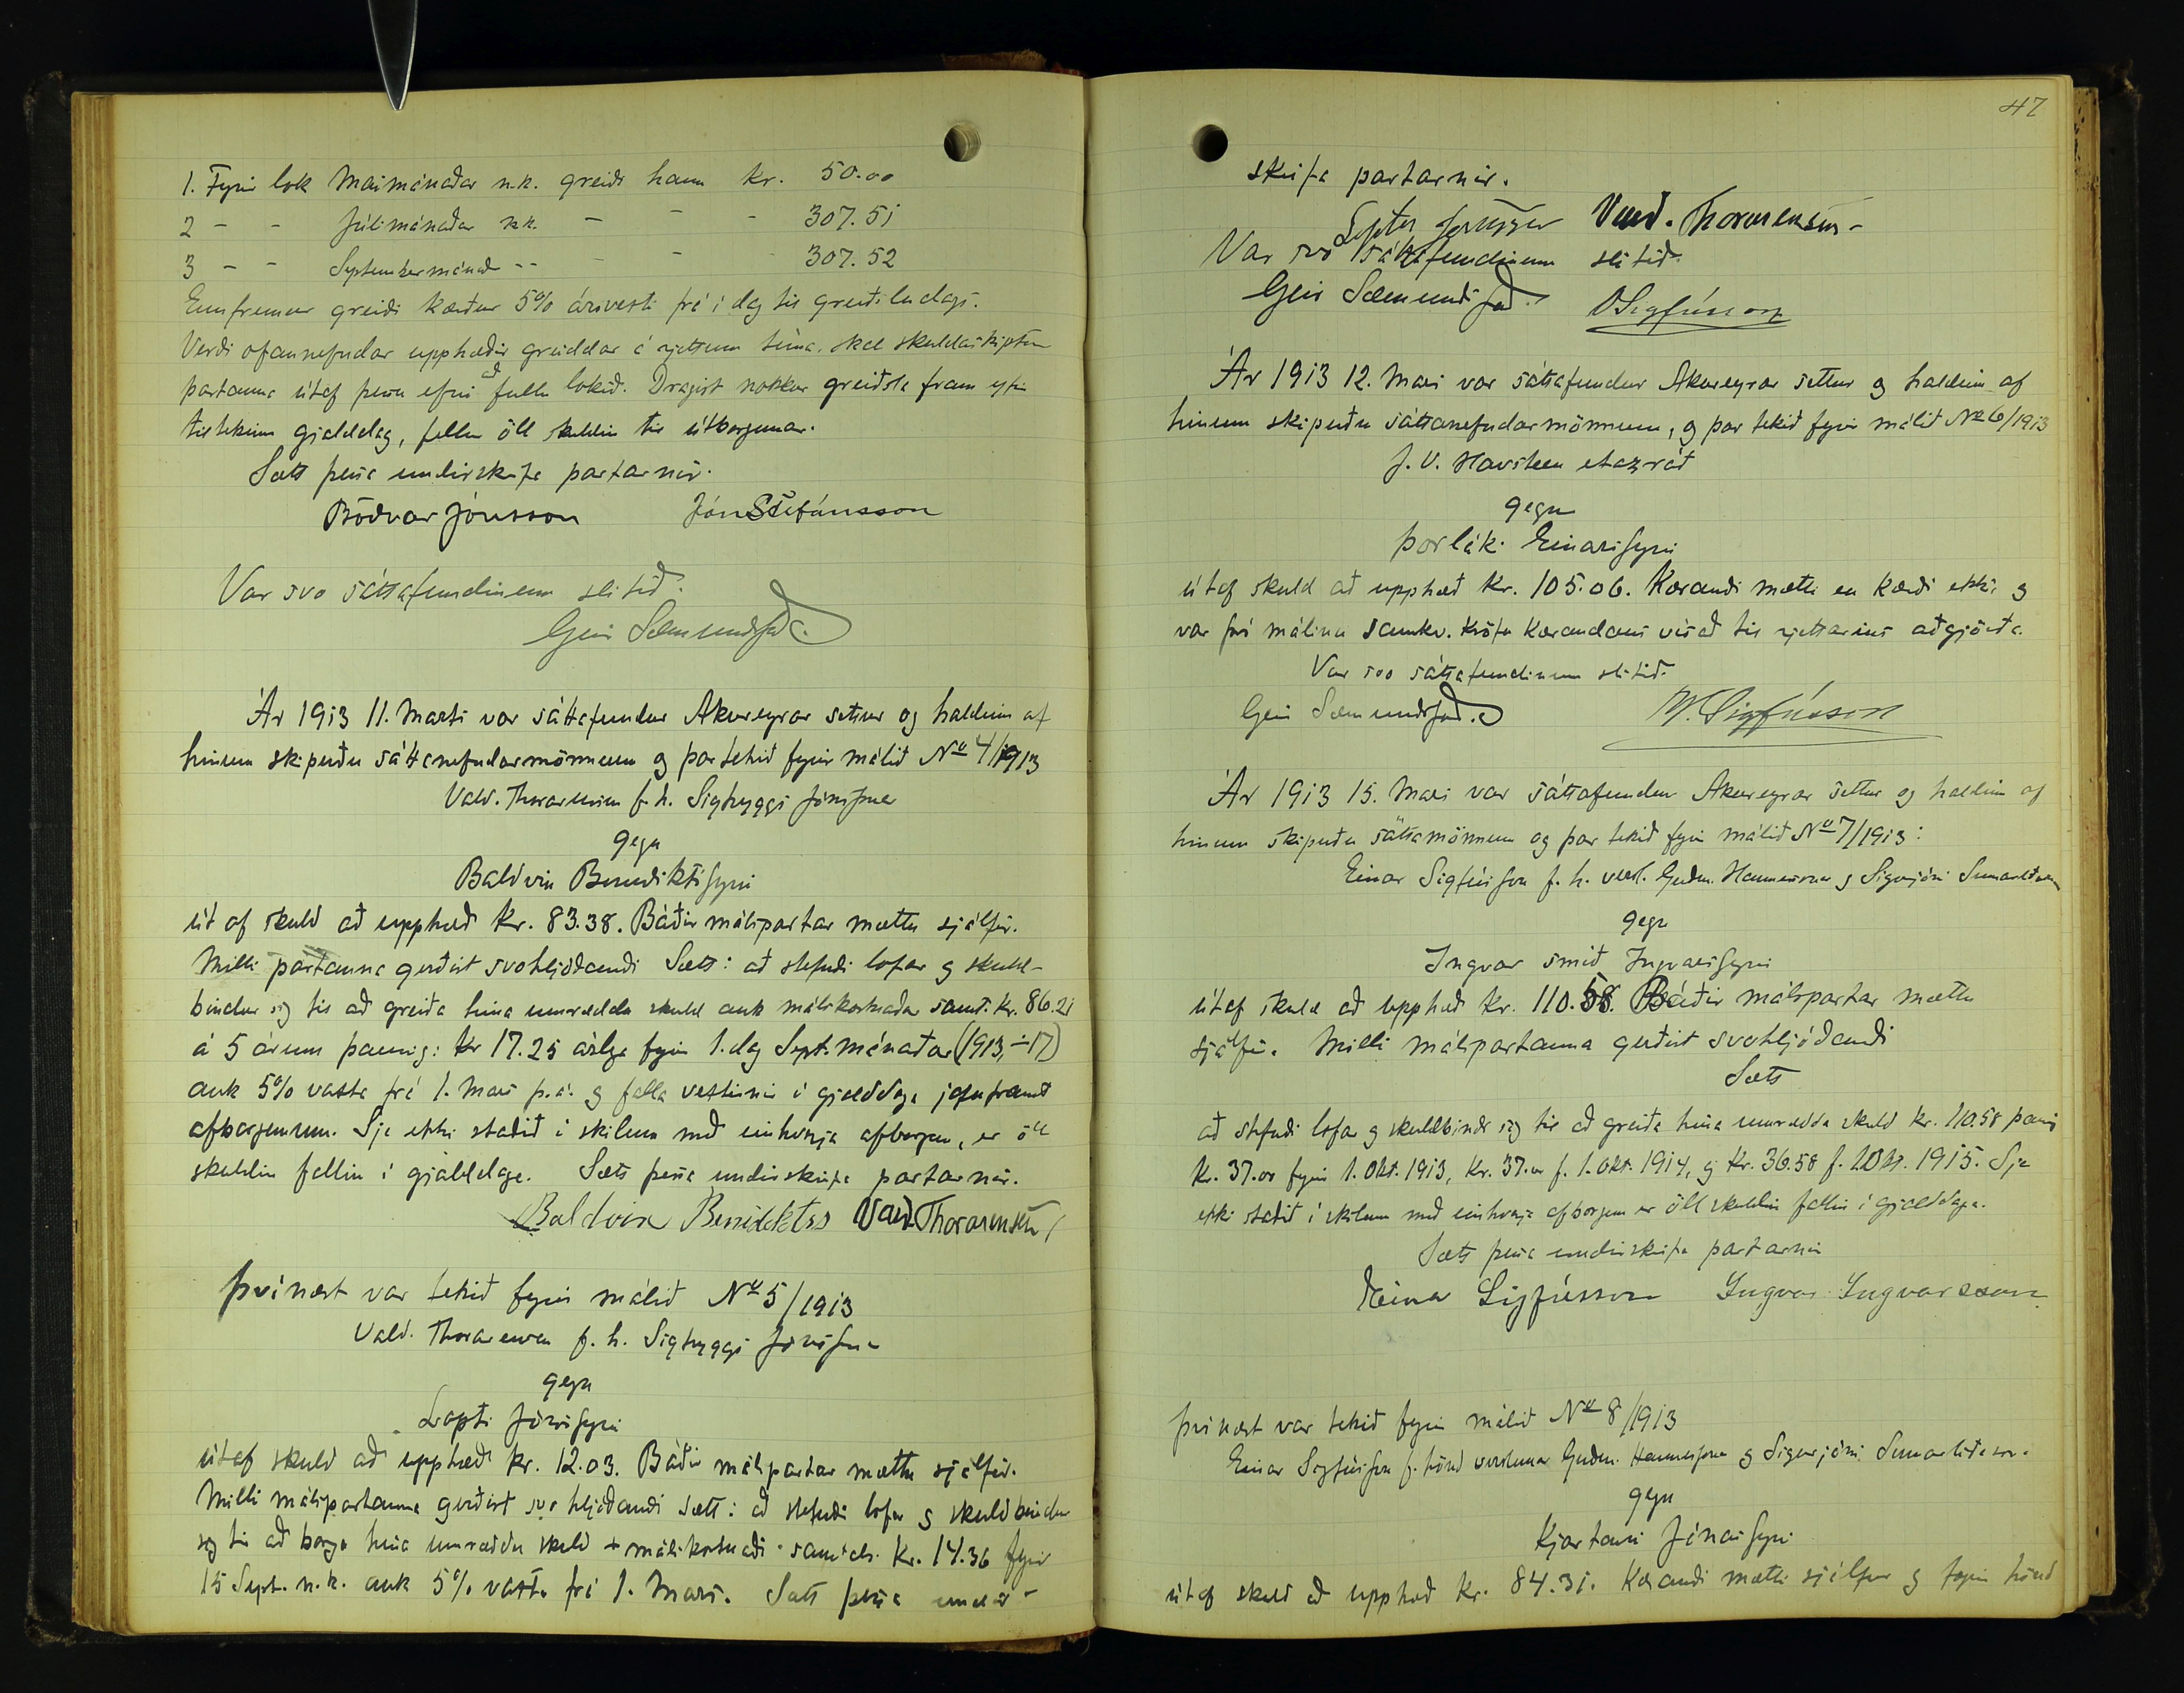 1. Fyrir lok Maímánaðar n.k. greiði hann kr. 50.00
2 - - Júlímánaðar n.k. - - - 307.51
3 - - Septembermánað - - - - - 307.52
Ennfremur greiði kærður 5% ársvexti frá í dag til greiðsludags.
Verði ofannefndar upphæðir greiddar á rjettum tíma, skal skuldaskiptum
partanna útaf þessu efni að fullu lokið. Dragist nokkur greiðsla fram yfir
tiltekinn gjalddag, fellur öll skuldin til útborgunar.
Sætt þessa undirskrifa partarnir.
Böðvar Jónsson Jón Stefánsson
Var svo sáttafundinum slitið.
Geir Sæmundsson
Ár 1913 11. Marts var sáttafundur Akureyrar settur og haldinn af
hinum skipuðu sáttanefndarmönnum og þar tekið fyrir málið No 4/1913
Vald. Thorarensen f. h. Sigtryggs Jónssonar
gegn
Baldvin Benediktssyni
út af skuld að upphæð kr. 83.38. Báðir málspartar mættu sjálfir.
Milli partanna gerðist svohljóðandi Sætt: að stefndi lofar og skuld-
bindur sig til að greiða hina umræddu skuld auk málskostnaðar samt. kr. 86.21
á 5 árum þannig: kr 17.25 árlega fyrir 1. dag Sept. mánaðar (1913,-17)
auk 5% vaxta frá 1. Mars þ.á. og falla vextirnir í gjalddaga jafnframt
afborgunum. Sje ekki staðið í skilum með einhverja afborgun, er öll
skuldin fallin í gjalddaga. Sætt þessa undirskrifa partarnir.
Baldvin Benidiktss Vald. Thorarensen
Þvínæst var tekið fyrir málið No 5/1913
Vald. Thorarensen f. h. Sigtryggs Jónssonar
gegn
Lopti Jónssyni
útaf skuld að upphæð kr. 12.03. Báðir málspartar mættu sjálfir.
Milli málspartanna gerðist svo hljóðandi sætt: að stefndi lofar og skuldbindur
sig til að borga hina umræddu skuld + málskostnaði samtals kr. 14.36 fyrir
15 Sept. n.k. auk 5% vaxta frá 1. Mars. Sætt þessa undir-
47
skrifa partarnir.
Loptur Jónsson Vald. Thorarensen
Var svo sáttafundinum slitið.
Geir Sæmundsson. OSigfússon
Ár 1913 12. Mars var sáttafundur Akureyrar settur og haldinn af
hinum skipuðu sáttanefndarmönnum, og þar tekið fyrir málið No 6/1913
J. V. Havsteen etazráð
gegn
Þorláki Einarssyni
útaf skuld að upphæð kr. 105.06. Kærandi mætti en kærði ekki og
var því málinu samkv. kröfu kærandans vísað til rjettarins aðgjörða.
Var svo sáttafundinum slitið.
Geir Sæmundsson. Sigfússon
Ár 1913 15. Mars var sáttafundur Akureyrar settur og haldinn af
hinum skipuðu sáttamönnum og þar tekið fyrir málið No 7/1913:
Einar Sigfússon f. h. versl. Guðm. Hannessonar og Sigurjóns Sumarliðasonar
gegn
Ingvar smið Ingvarssyni
útaf skuld að upphæð kr. 110.58. Báðir málspartar mættu
sjálfir. Milli málspartanna gerðist svohljóðandi
Sætt
að stefndi lofar og skuldbindr sig til að greiða hina umræddu skuld kr. 110.58 þannig
kr. 37.00 fyrir 1. Okt. 1913, kr. 37.00 f. 1. Okt. 1914, og kr. 36.58 f. 1. Okt. 1915. Sje
ekki staðið í skilum með einhverja afborgun er öll skuldin fallin í gjalddaga.
Sætt þessa undirskrifa partarnir
Einar Sigfússon Ingvar Ingvarsson
Þvínæst var tekið fyrir málið No 8/1913
Einar Sigfússon f. hönd verslunar Guðm. Hannessonar og Sigurjóns Sumarliðason.
gegn
Kjartani Jónassyni
útaf skuld að upphæð kr. 84.31. Kærandi mætti sjálfur og fyrir hönd